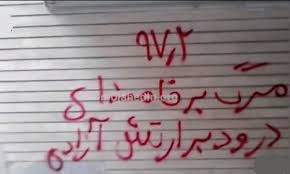 ۹۷,۲
مرگ بر خامنه ای
درود بر ارتش آزادی